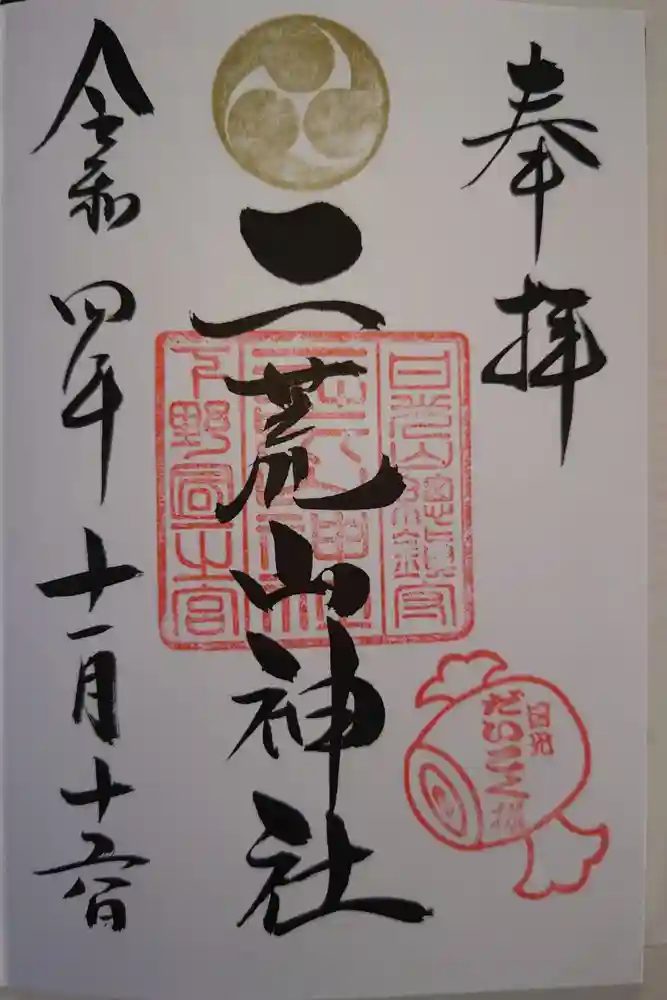 奉拝
日光山總鎮守
二荒山神社
下野國一之宮
二荒山神社
日光
だいこく様
令和四年十一月十日